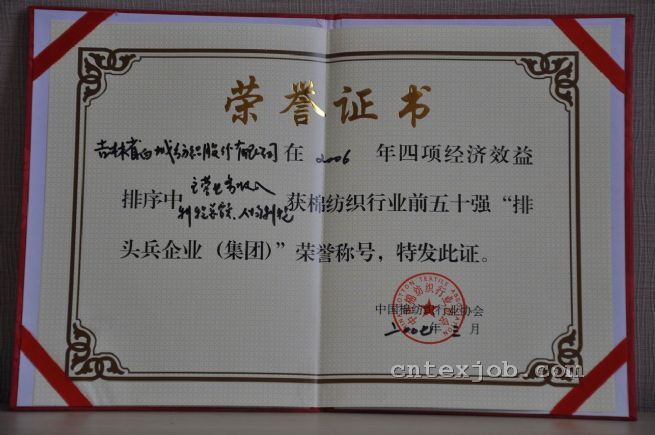 荣誉证书
吉林省白城纺织股份有限公司 在 2006 年四项经济效益
排序中 主营业务收入
利税总额、人均利税 获棉纺织行业前五十强“排
头兵企业（集团）”荣誉称号，特发此证。
中国棉纺织行业协会
二00七年三月
CHINA COTTON TEXTILE ASSOCIATION
cntexjob.com